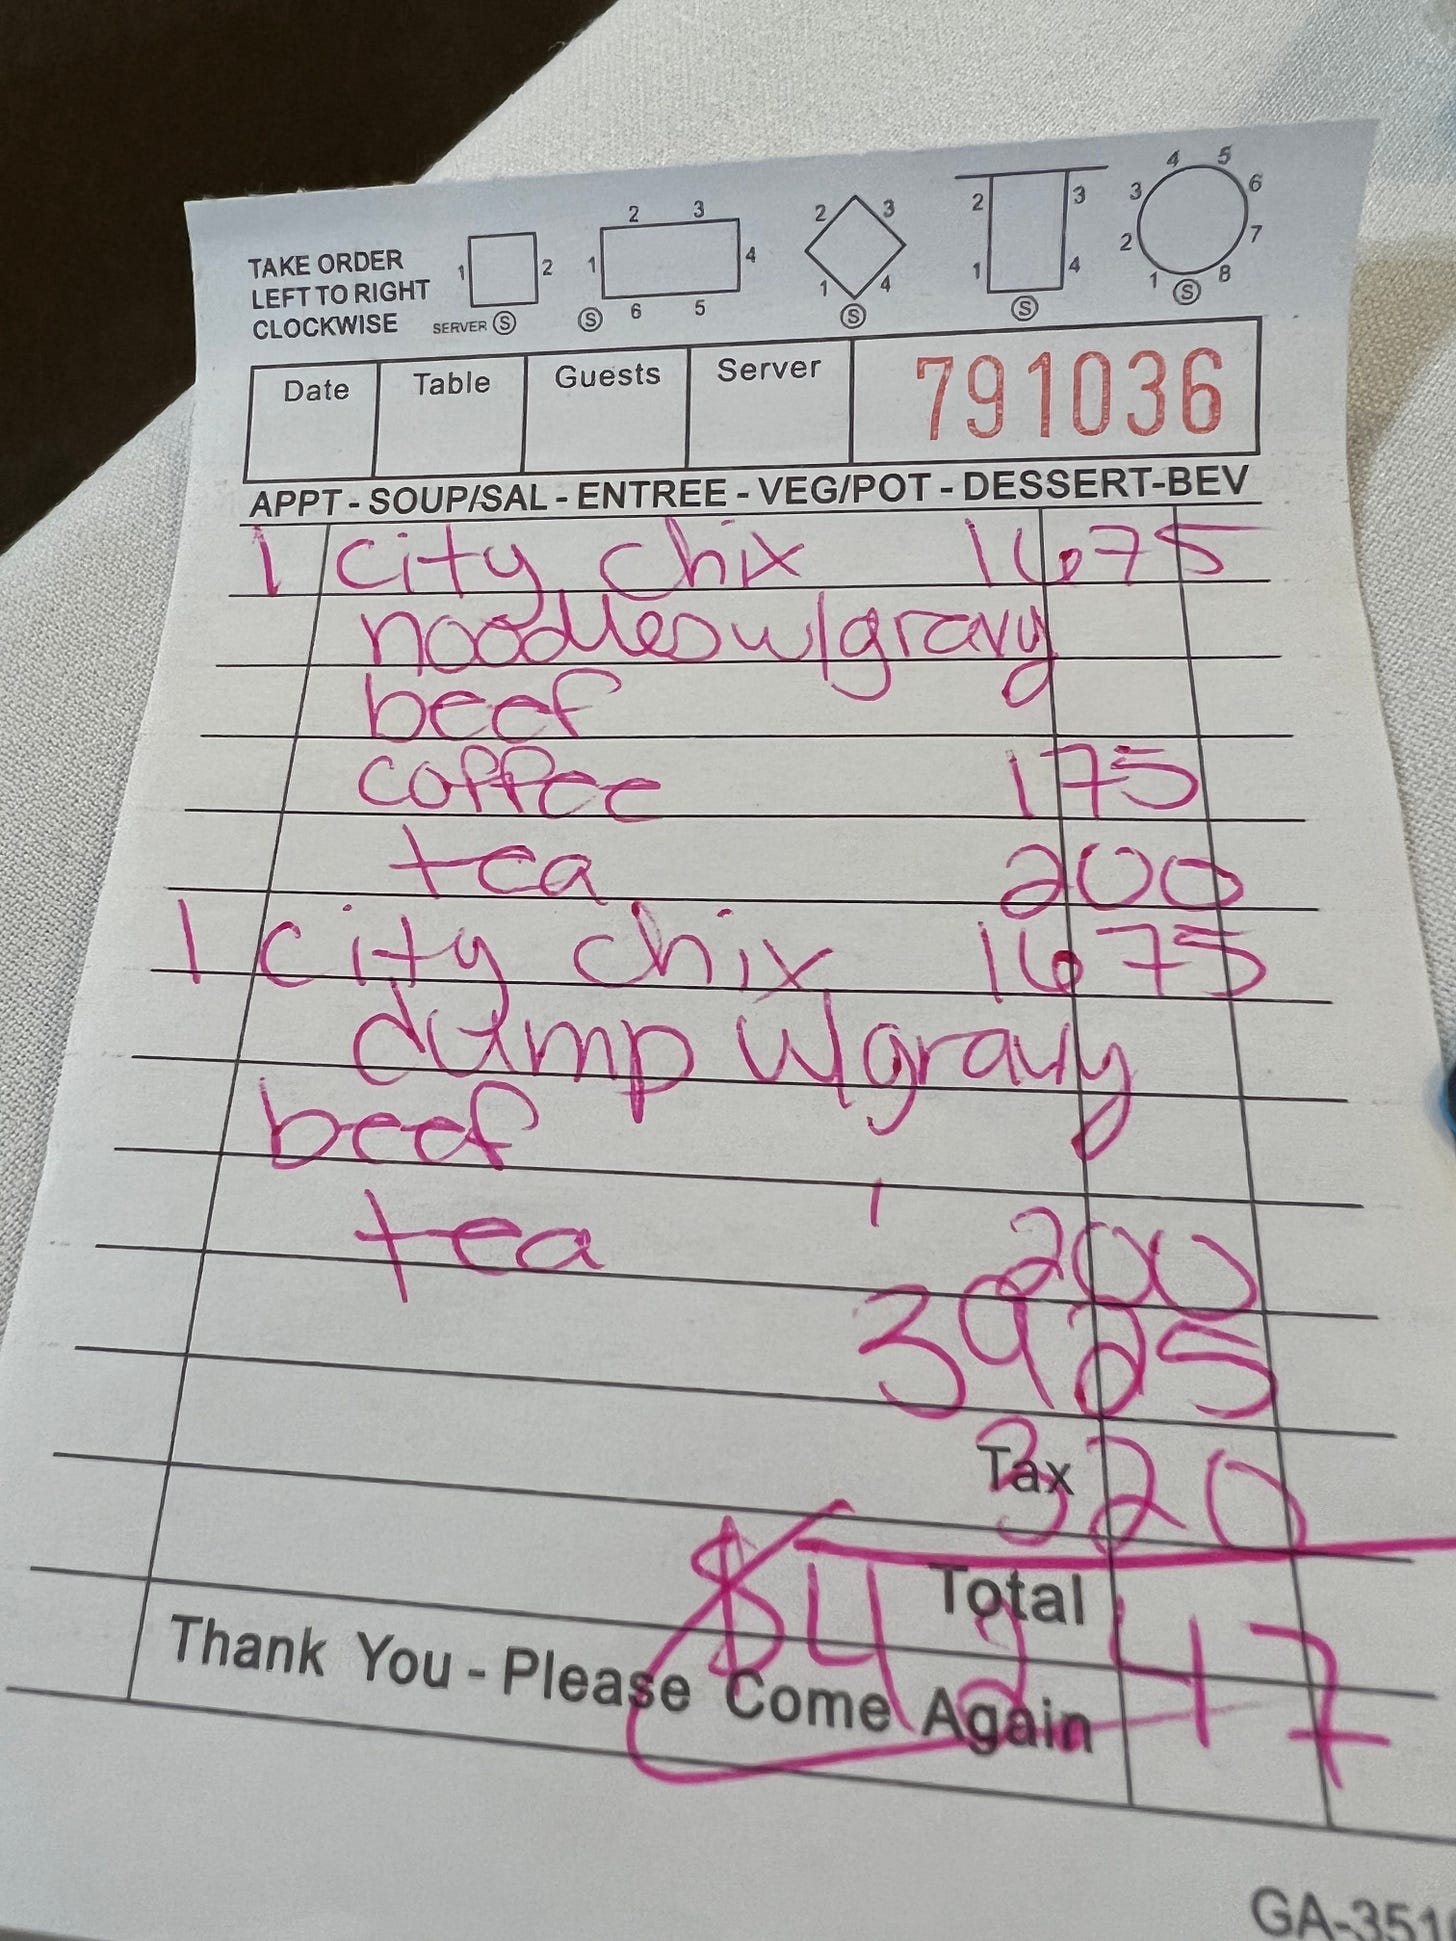 2 3 4 5
TAKE ORDER 1 2 1 4 2 3 2 3 3 6
LEFT TO RIGHT 2 7
CLOCKWISE SERVER S S 6 5 1 4 S 1 4 S 1 8 S
Date Table Guests Server 791036
APPT - SOUP/SAL - ENTREE - VEG/POT - DESSERT-BEV
1 city chix 16 75
noodles w/gravy
beef
coffee 1 75
tea 2 00
1 city chix 16 75
dump w/gravy
beef
tea 2 00
39 25
Tax 3 20
Total $42 47
Thank You - Please Come Again
GA-351